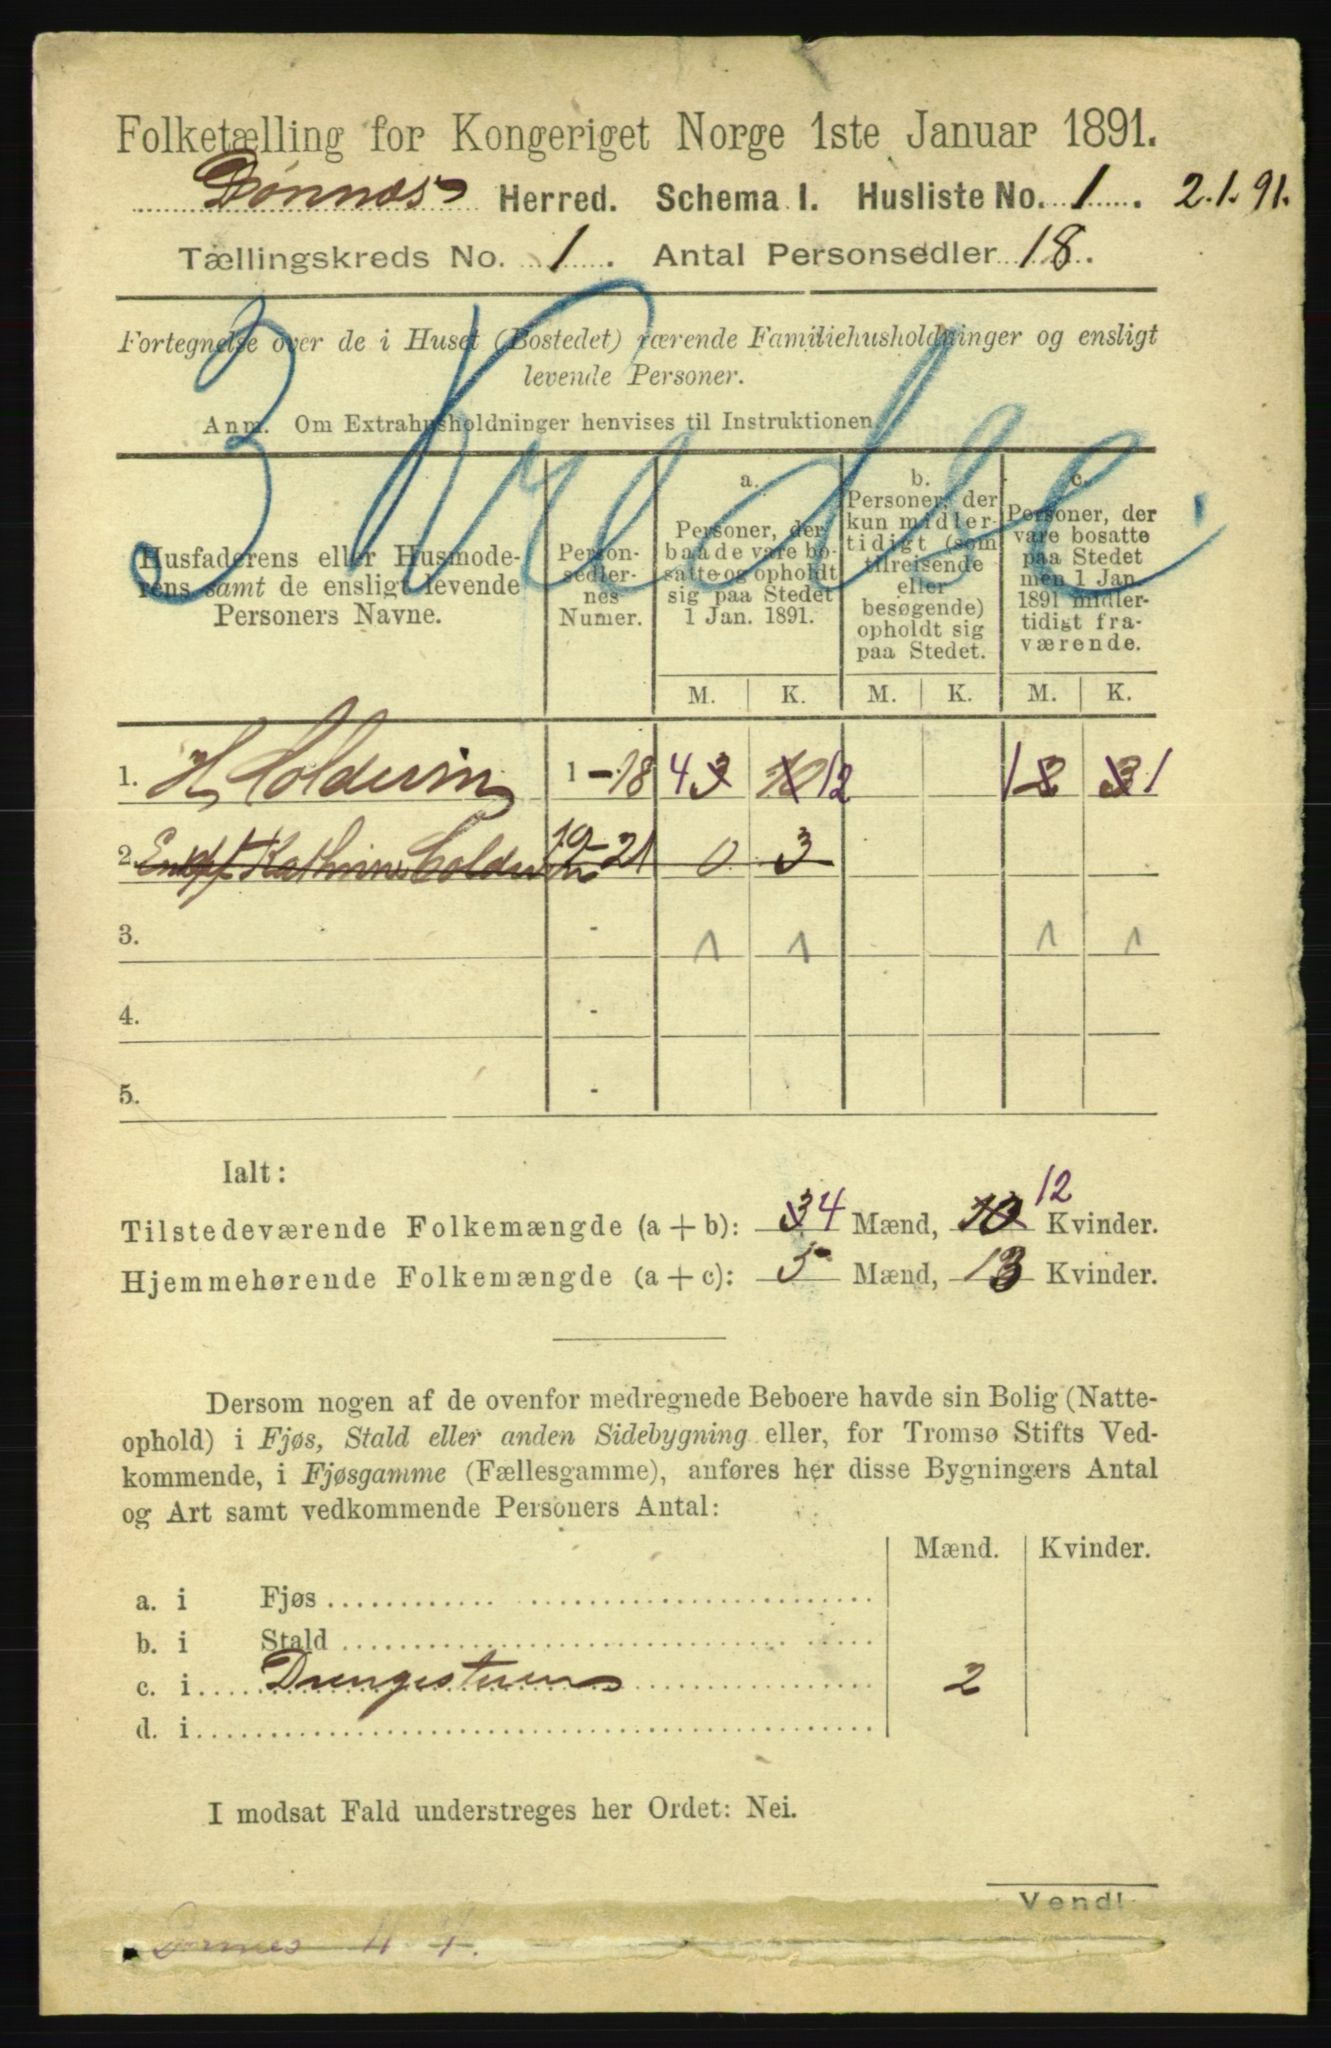 Folketælling for Kongeriget Norge 1ste Januar 1891.
Dønnæs Herred. Schema I. Husliste No. 1. 2.1.91.
Tællingskreds No. 1. Antal Personsedler 18.
3 Kredse
Fortegnelse over de i Huset (Bostedet) værende Familiehusholdninger og ensligt
levende Personer.
Anm. Om Extrahusholdninger henvises til Instruktionen.
Husfaderens eller Husmode-
rens samt de ensligt levende
Personers Navne.
Person-
sedler-
nes
Numer.
a.
Personer, der
baade vare bo-
satte og opholdt
sig paa Stedet
1 Jan. 1891.
b.
Personer, der
kun midler-
tidigt (som
tilreisende
eller
besøgende)
opholdt sig
paa Stedet.
c.
Personer, der
vare bosatte
paa Stedet
men 1 Jan.
1891 midler-
tidigt fra-
værende.
M. K. M. K. M. K.
1. H. Coldevin 1 - 18 4 3 10 12 1 2 3 1
2. Kathrine Coldevin 19 - 21 0 3
3. - 1 1 1 1
4. -
5. -
Ialt:
12
Tilstedeværende Folkemængde (a + b): 3 4 Mænd, 10 Kvinder.
Hjemmehørende Folkemængde (a + c): 5 Mænd, 13 Kvinder.
Dersom nogen af de ovenfor medregnede Beboere havde sin Bolig (Natte-
ophold) i Fjøs, Stald eller anden Sidebygning eller, for Tromsø Stifts Ved-
kommende, i Fjøsgamme (Fællesgamme), anføres her disse Bygningers Antal
og Art samt vedkommende Personers Antal:
Mænd. Kvinder.
a. i Fjøs
b. i Stald
c. i Drengestuen 2
d. i
I modsat Fald understreges her Ordet: Nei.
Vend!